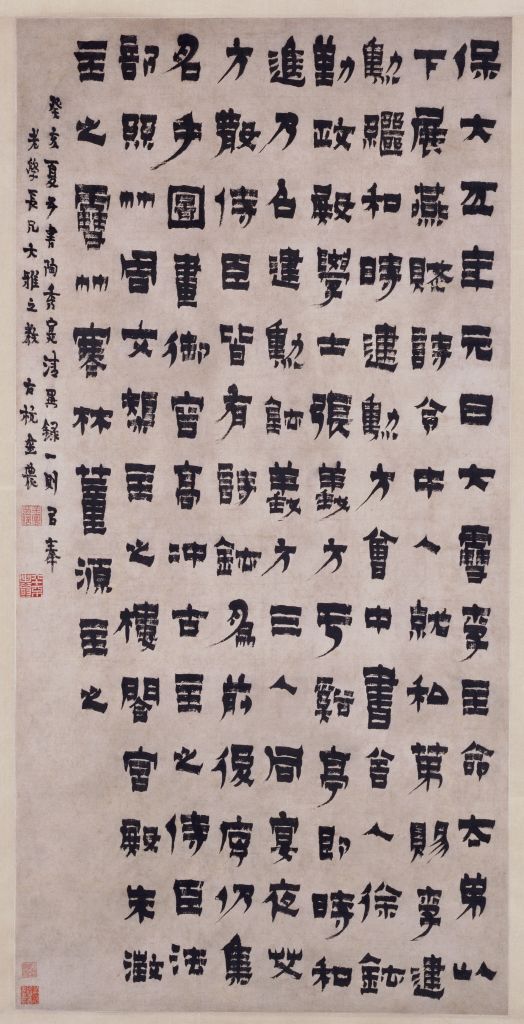 保大五年元日大雪李主命太弟以
下展燕賦詩令中人就和第賜李建
勳繼和時建勳方會中書舍人徐鉉
勤政殿學士張義方于谿亭即時和
進乃召建勳鉉義方三人同宴夜艾
方散侍臣皆有詩鉉為前後序仍集
名手圖畫御容高沖古主之侍臣法
部絲竹周文矩主之樓閣宮殿朱澂
主之雪竹寒林董源主之
癸亥夏五書陶秀實清異錄一則㠯奉
老學長兄大雅之教 古杭金農